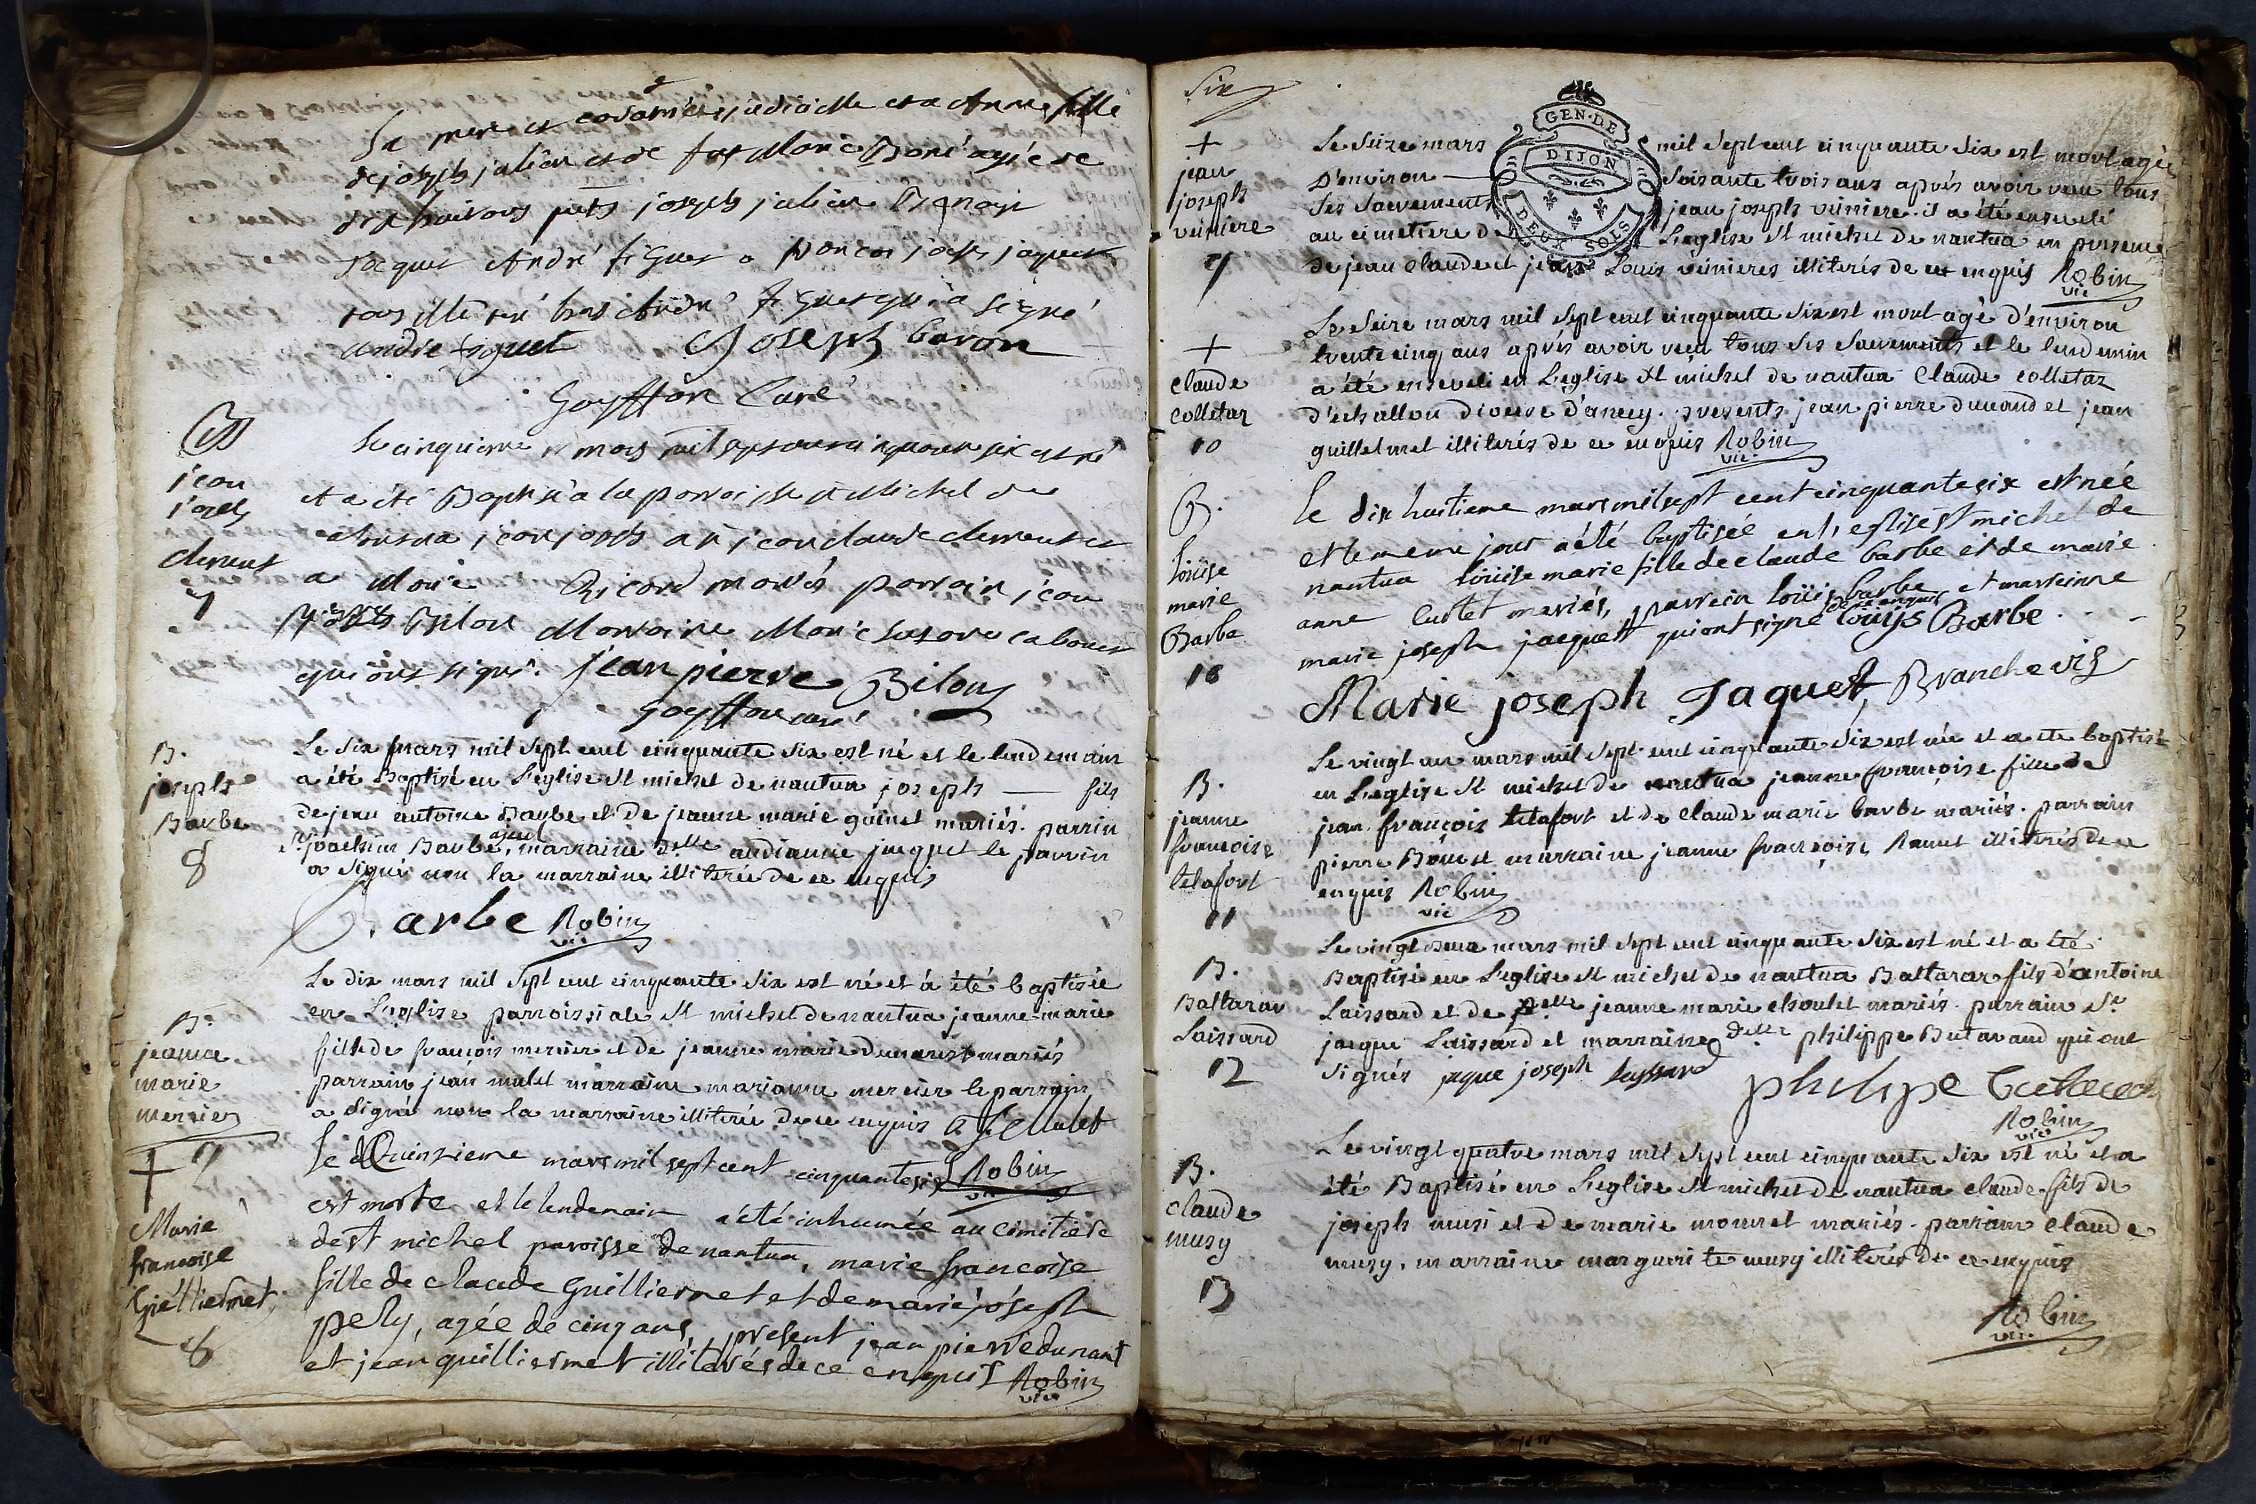 sa mere et Anne fille
de joseph julien et de Marie agée de
dix huit ans joseph julien
jacquet André figuet joseph jaquet
André figuet qui a signé
andre figuet Joseph baron
Goyffon Curé
B
jean
joseph
clement
7
le cinquieme mars mil sept cent cinquante six est né
et a été Baptisé a la paroisse st Michel de
nantua jean joseph jean claude clement et
Marie Ricord mariés parrain jean
pierre Bilon Marraine Marie
qui ont signé. jean pierre Bilon
Goyffon curé
B.
joseph
Barbe
8
Le six mars mil sept cent cinquante six est né et le lendemain
a été Baptisé en L'eglise st michel de nantua joseph — fils
de jean antoine Barbe et de jeanne marie goinet mariés. parrin
sr joachim Barbe, ayeul marraine Delle andianne jacquet le parrin
a signé non la marraine illiterée de ce enquis
Barbe Robin
vic
B.
jeanne
marie
mercier
Le dix mars mil sept cent cinquante six est né et à été baptisée
en L'eglise parroissiale st michel de nantua jeanne marie
fille de françois mercier et de jeanne marie mariés
parrain jean mulet marraine marianne mercier le parrain
a signé non la marraine illiterée de ce enquis Mulet
Robin
vic
†
Marie
francoise
Guilliermet
8
Le Quinzieme mars mil sept cent cinquante six
est morte et le lendemain a été inhumée au cimitiere
de st michel paroisse de nantua, marie francoise
fille de claude Guilliermet et de marie joseph
pely, agée de cinq ans, present jean pierre dunant
et jean guilliermet illiterés de ce enquis Robin
vic
Six
GEN. DE
DIJON
DEUX SOLS
+
jean
joseph
veüniere
9
Le seize mars mil sept cent cinquante six est mort agé
D'environ — soisante trois ans aprés avoir reçu tous
ses sacrements jean joseph veüniere. il a été enseveli
au cimetiere de L'eglise st michel de nantua en presence
de jean claude et jean Louis veünieres illiterés de ce enquis Robin
vic
+
claude
colletaz
10
Le seize mars mil sept cent cinquante six est mort agé d'environ
trente cinq ans aprés avoir reçu tous ses sacrements et le lendemin
a été enseveli en L'eglise st michel de nantua Claude colletaz
d'echallon diocese d'anecy. presents jean pierre dunand et jean
guillelmet illiterés de ce enquis Robin
vic.
B.
loüise
marie
Barbe
10
Le dix huitieme mars mil sept cent cinquante six est née
et le meme jour a été baptisée en l'eglise st michel de
nantua loüise marie fille de claude barbe et de marie
anne curtet mariés, parrein loüis barbe et marreinne
marie joseph jacquett qui ont signé de ce enquis loüys Barbe
Marie joseph Jaquet, Branche vic
B.
jeanne
françoise
telafort
11
Le vingt un mars mil sept cent cinquante six est née et a ete baptisée
en L'eglise st michel de nantua jeanne françoise fille de
jean françois telafort et de claude marie barbe mariés. parrain
pierre Bouet marraine jeanne francoise Ramet illiterés de ce
enquis Robin
vic
B.
Baltazar
Laissard
12
Le vingt deux mars mil sept cent cinquante six est né et a été
Baptisé en L'eglise st michel de nantua Baltazar fils d'antoine
Laissard et de Delle jeanne marie choulet mariés. parrain Sr
jacque Laissard et marraine Delle philippe Butavaud qui ont
signés jaque joseph leyssard
philipe butavaud
Robin
vic
B.
claude
musy
13
Le vingt quatre mars mil sept cent cinquante six est né et a
été Baptisé en L'eglise st michel de nantua claude fils de
joseph musi et de marie mournet mariés. parrain claude
musy, marraine marguerite musy illiterés de ce enquis
Robin
vic.